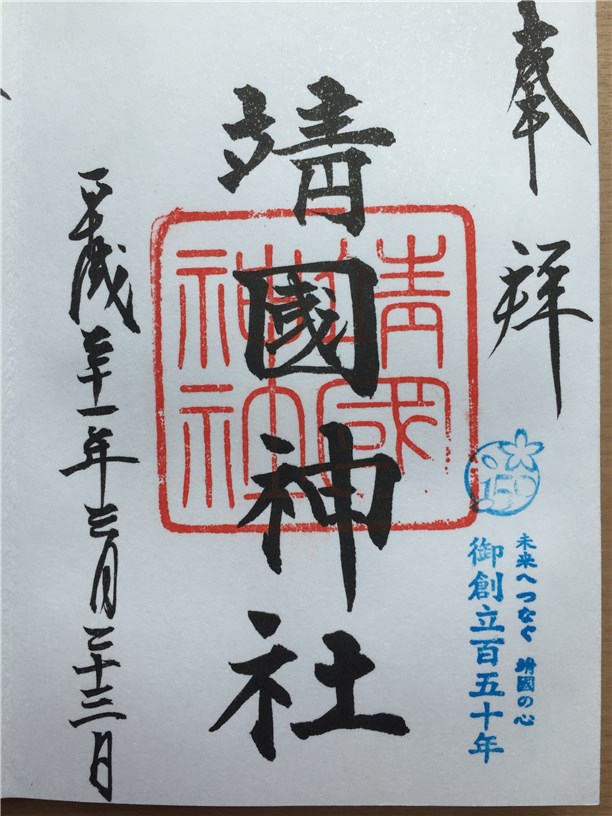 奉拝
靖國神社
靖國神社
150
未来へつなぐ 靖國の心
御創立百五十年
平成三十一年三月二十三日